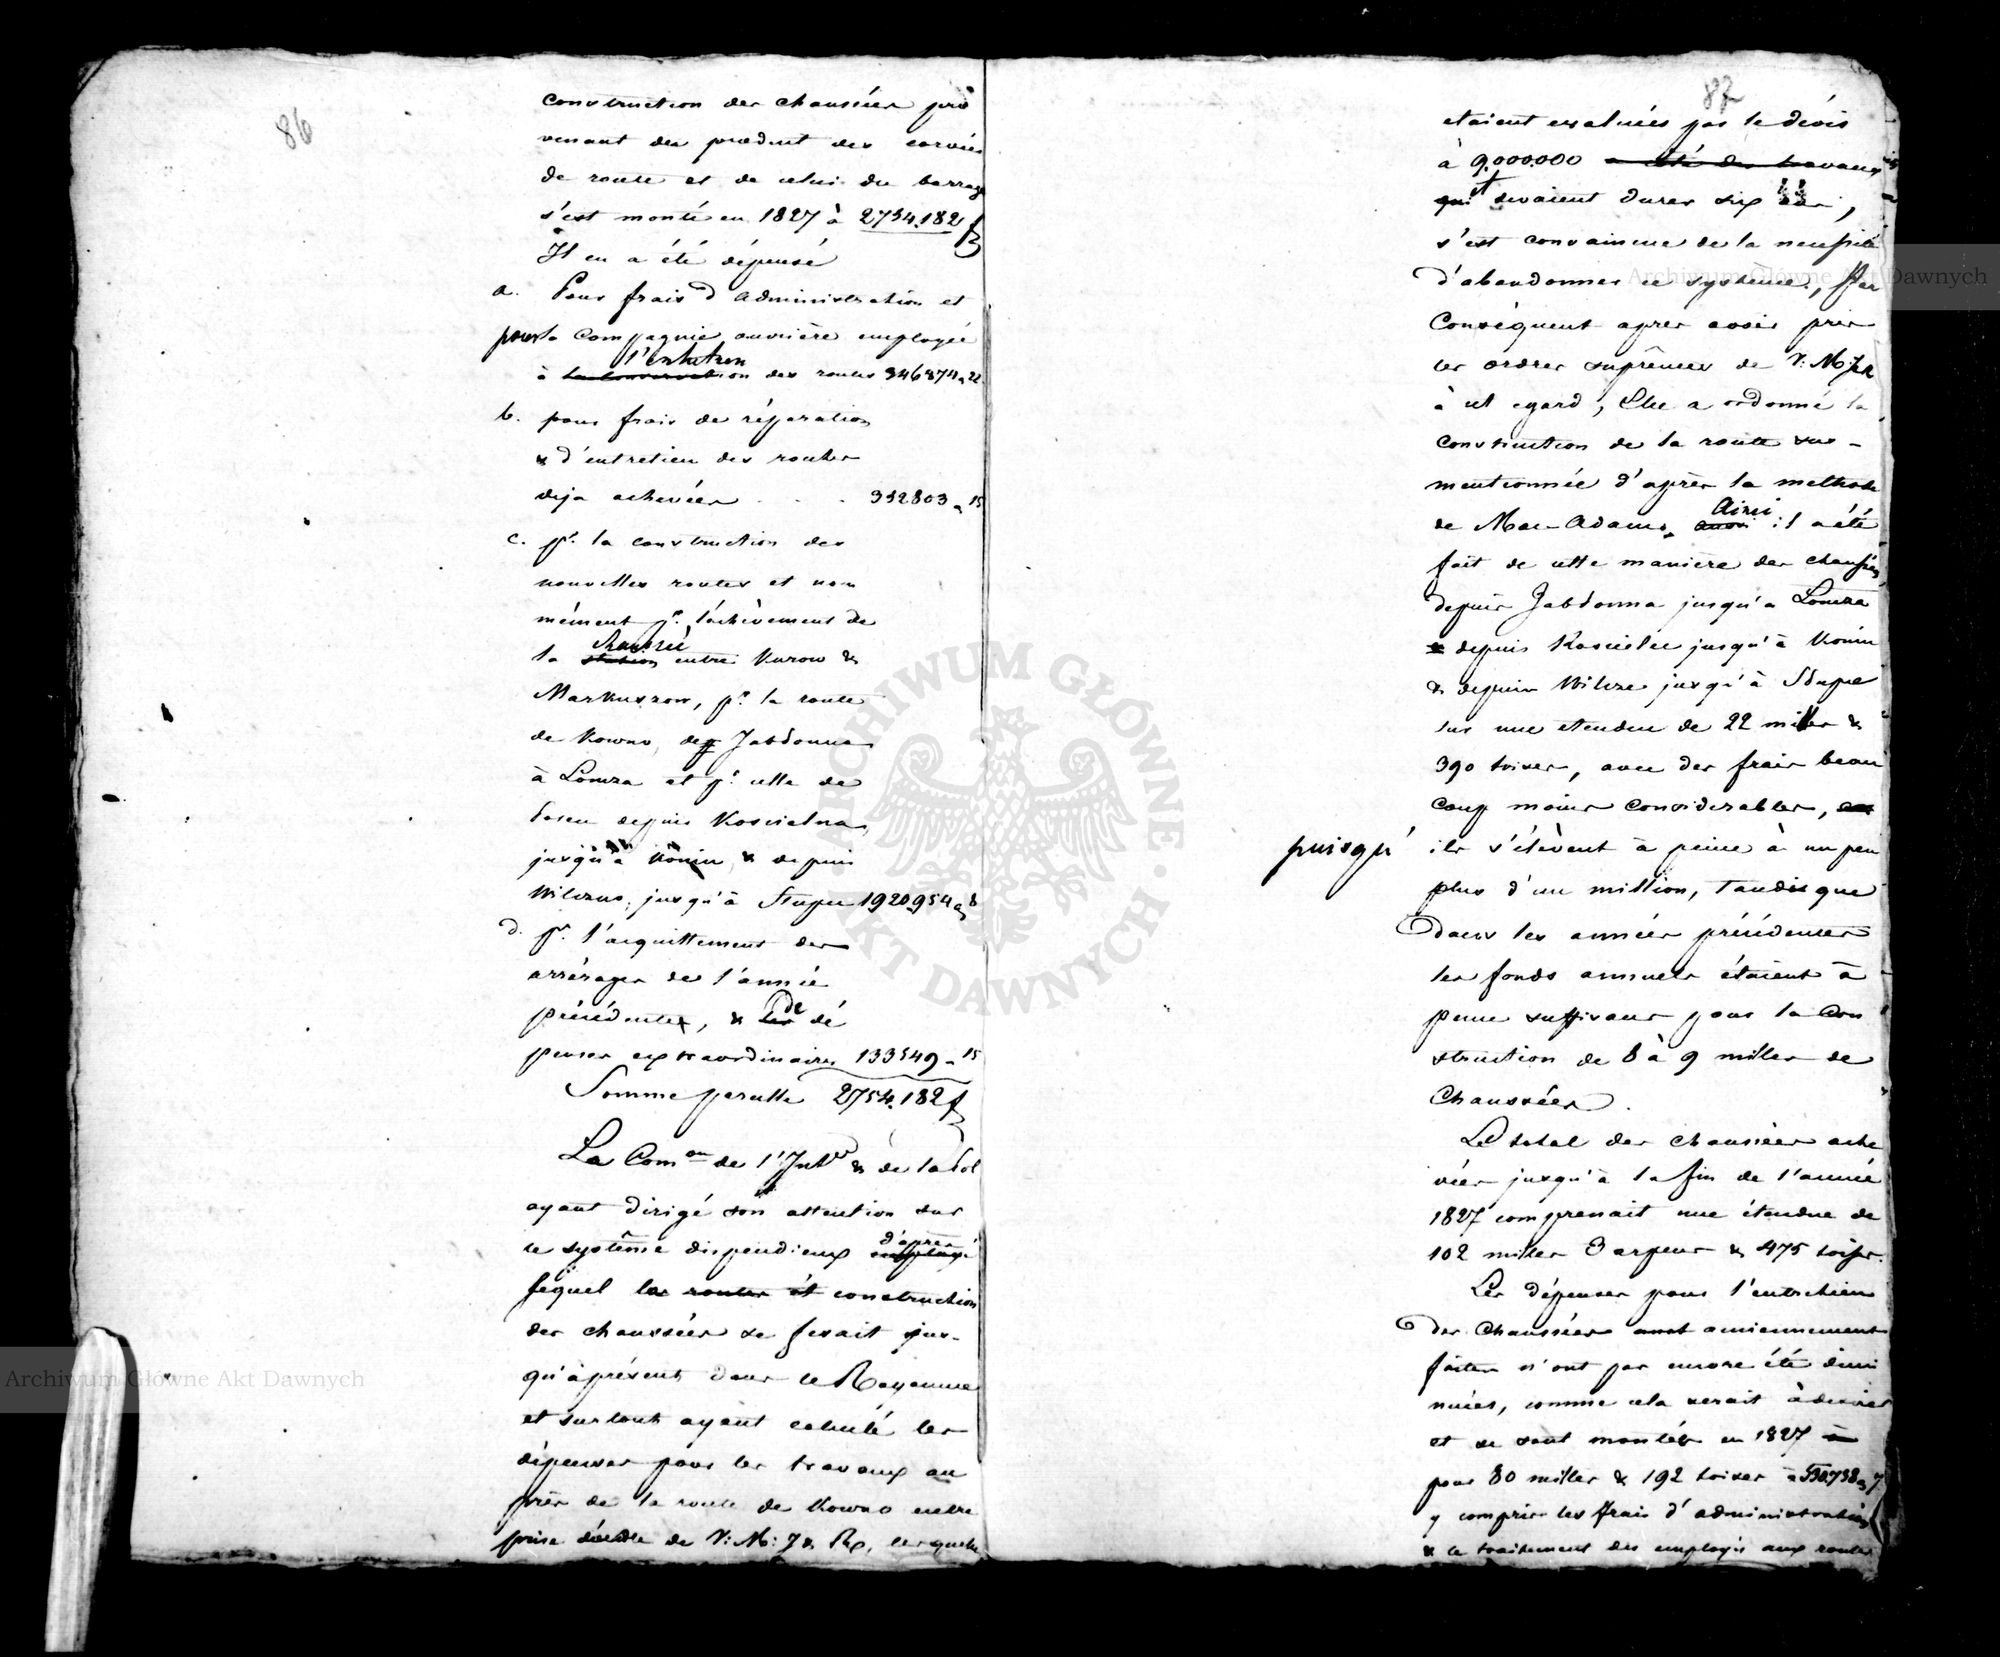 86
construction des chaussées pro
venant du produit des corvées
de route et de celui du barrage
s'est monté en 1827 à 2754.182 f
Il en a été dépensé
a. Pour frais d'administration et
pour la Compagnie ouvrière employée
l'entretien
à la conservation des routes 346874 22
b. pour frais de réparation
& d'entretien des routes
deja achevées . . . 352803 15
c. pr. la construction des
nouvelles routes et nom
mément pr. l'achèvement de
chaussée
la station entre Kurow &
Markuszow, pr. la route
de Kowno, de Jabdonna
à Lomza et pr. celle de
Posen depuis Koscielna
jusqu'à Konin & depuis
jusqu'à Slupce 1920954 8
d. pr. l'acquittement des
arrérages de l'année
de
précédente, & les dé
penses extraordinaires 133549 15
Somme pareille 2754.182 f
La Comon de l'Intr & de la Pol
ayant dirigé son attention sur
d'après
le système dispendieux employé
lequel la routes et construction
des chaussées se fesait jus-
qu'à présent dans le Royaume
et surtout ayant calculé les
dépenses pour les travaux au
près de la route de Kowno entre
prise de V: M: I & R, lesquels
87
etaient evalués par le dévis
à 9.000.000 a été des travaux
et
qui devaient durer six ans,
s'est convaincue de la necessité
d'abandonner ce système, Par
Conséquent apres avoir pris
les ordres suprêmes de V: M: I & R
à cet egard, Elle a ordonné la
construction de la route sus-
mentionnée d'après la methode
Ainsi
de Mac-Adams, aussi il a été
fait de cette manière des chaussées
depuis Jabdonna jusqu'a Lomza
& depuis Koscielec jusqu'à Konin
& depuis Wilcze jusqu'à Sdupce
sur une etendue de 22 milles &
390 toises, avec des frais beau
coup moins considerables, car
puisqu' ils s'élèvent à peine à un peu
plus d'un million, Tandis que
Dans les années précédentes
les fonds annuels étaient à
peine suffisans pour la Con
struction de 8 à 9 milles de
Chaussées.
Le total des chaussées ache
vées jusqu'à la fin de l'année
1827 comprenait une étendue de
102 milles 3 arpens & 475 toises.
Les dépenses pour l'entretien
des Chaussées anciennement
faites n'ont pas encore été dimi
nuées, comme cela serait à desirer
et se sont montées en 1827 à
pour 80 milles & 192 toises à 530.738 7
y compris les frais d'administration
& le traitement des employés aux routes